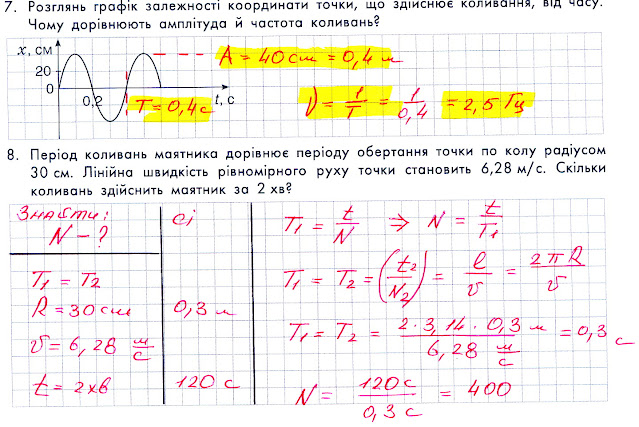 7. Розглянь графік залежності координати точки, що здійснює коливання, від часу.
Чому дорівнюють амплітуда й частота коливань?
x, см
A = 40 см = 0,4 м
20
0
0,2
T = 0,4 с
t, с
ν = 1/T = 1/0,4 = 2,5 Гц
8. Період коливань маятника дорівнює періоду обертання точки по колу радіусом
30 см. Лінійна швидкість рівномірного руху точки становить 6,28 м/с. Скільки
коливань здійснить маятник за 2 хв?
Знайти:
N - ?
СІ
T₁ = t/N ⇒ N = t/T₁
T₁ = T₂
T₁ = T₂ = (t₂/N₂) = l/v = 2πR/v
R = 30 см
0,3 м
v = 6,28 м/с
T₁ = T₂ = 2·3,14·0,3 м / 6,28 м/с = 0,3 с
t = 2 хв
120 с
N = 120 с / 0,3 с = 400